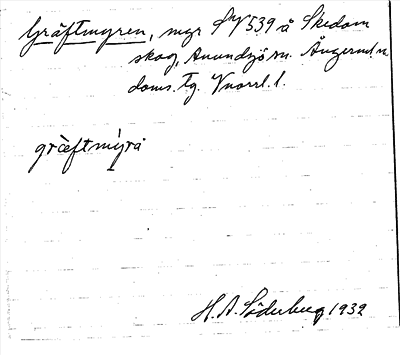 Gräftmyren, myr SW 539 å Skedom
skog, Anundsjö sn. Ångerml.n
doms. tg. Vnorrl. l.
gräftmýra
H. A. Söderberg 1932